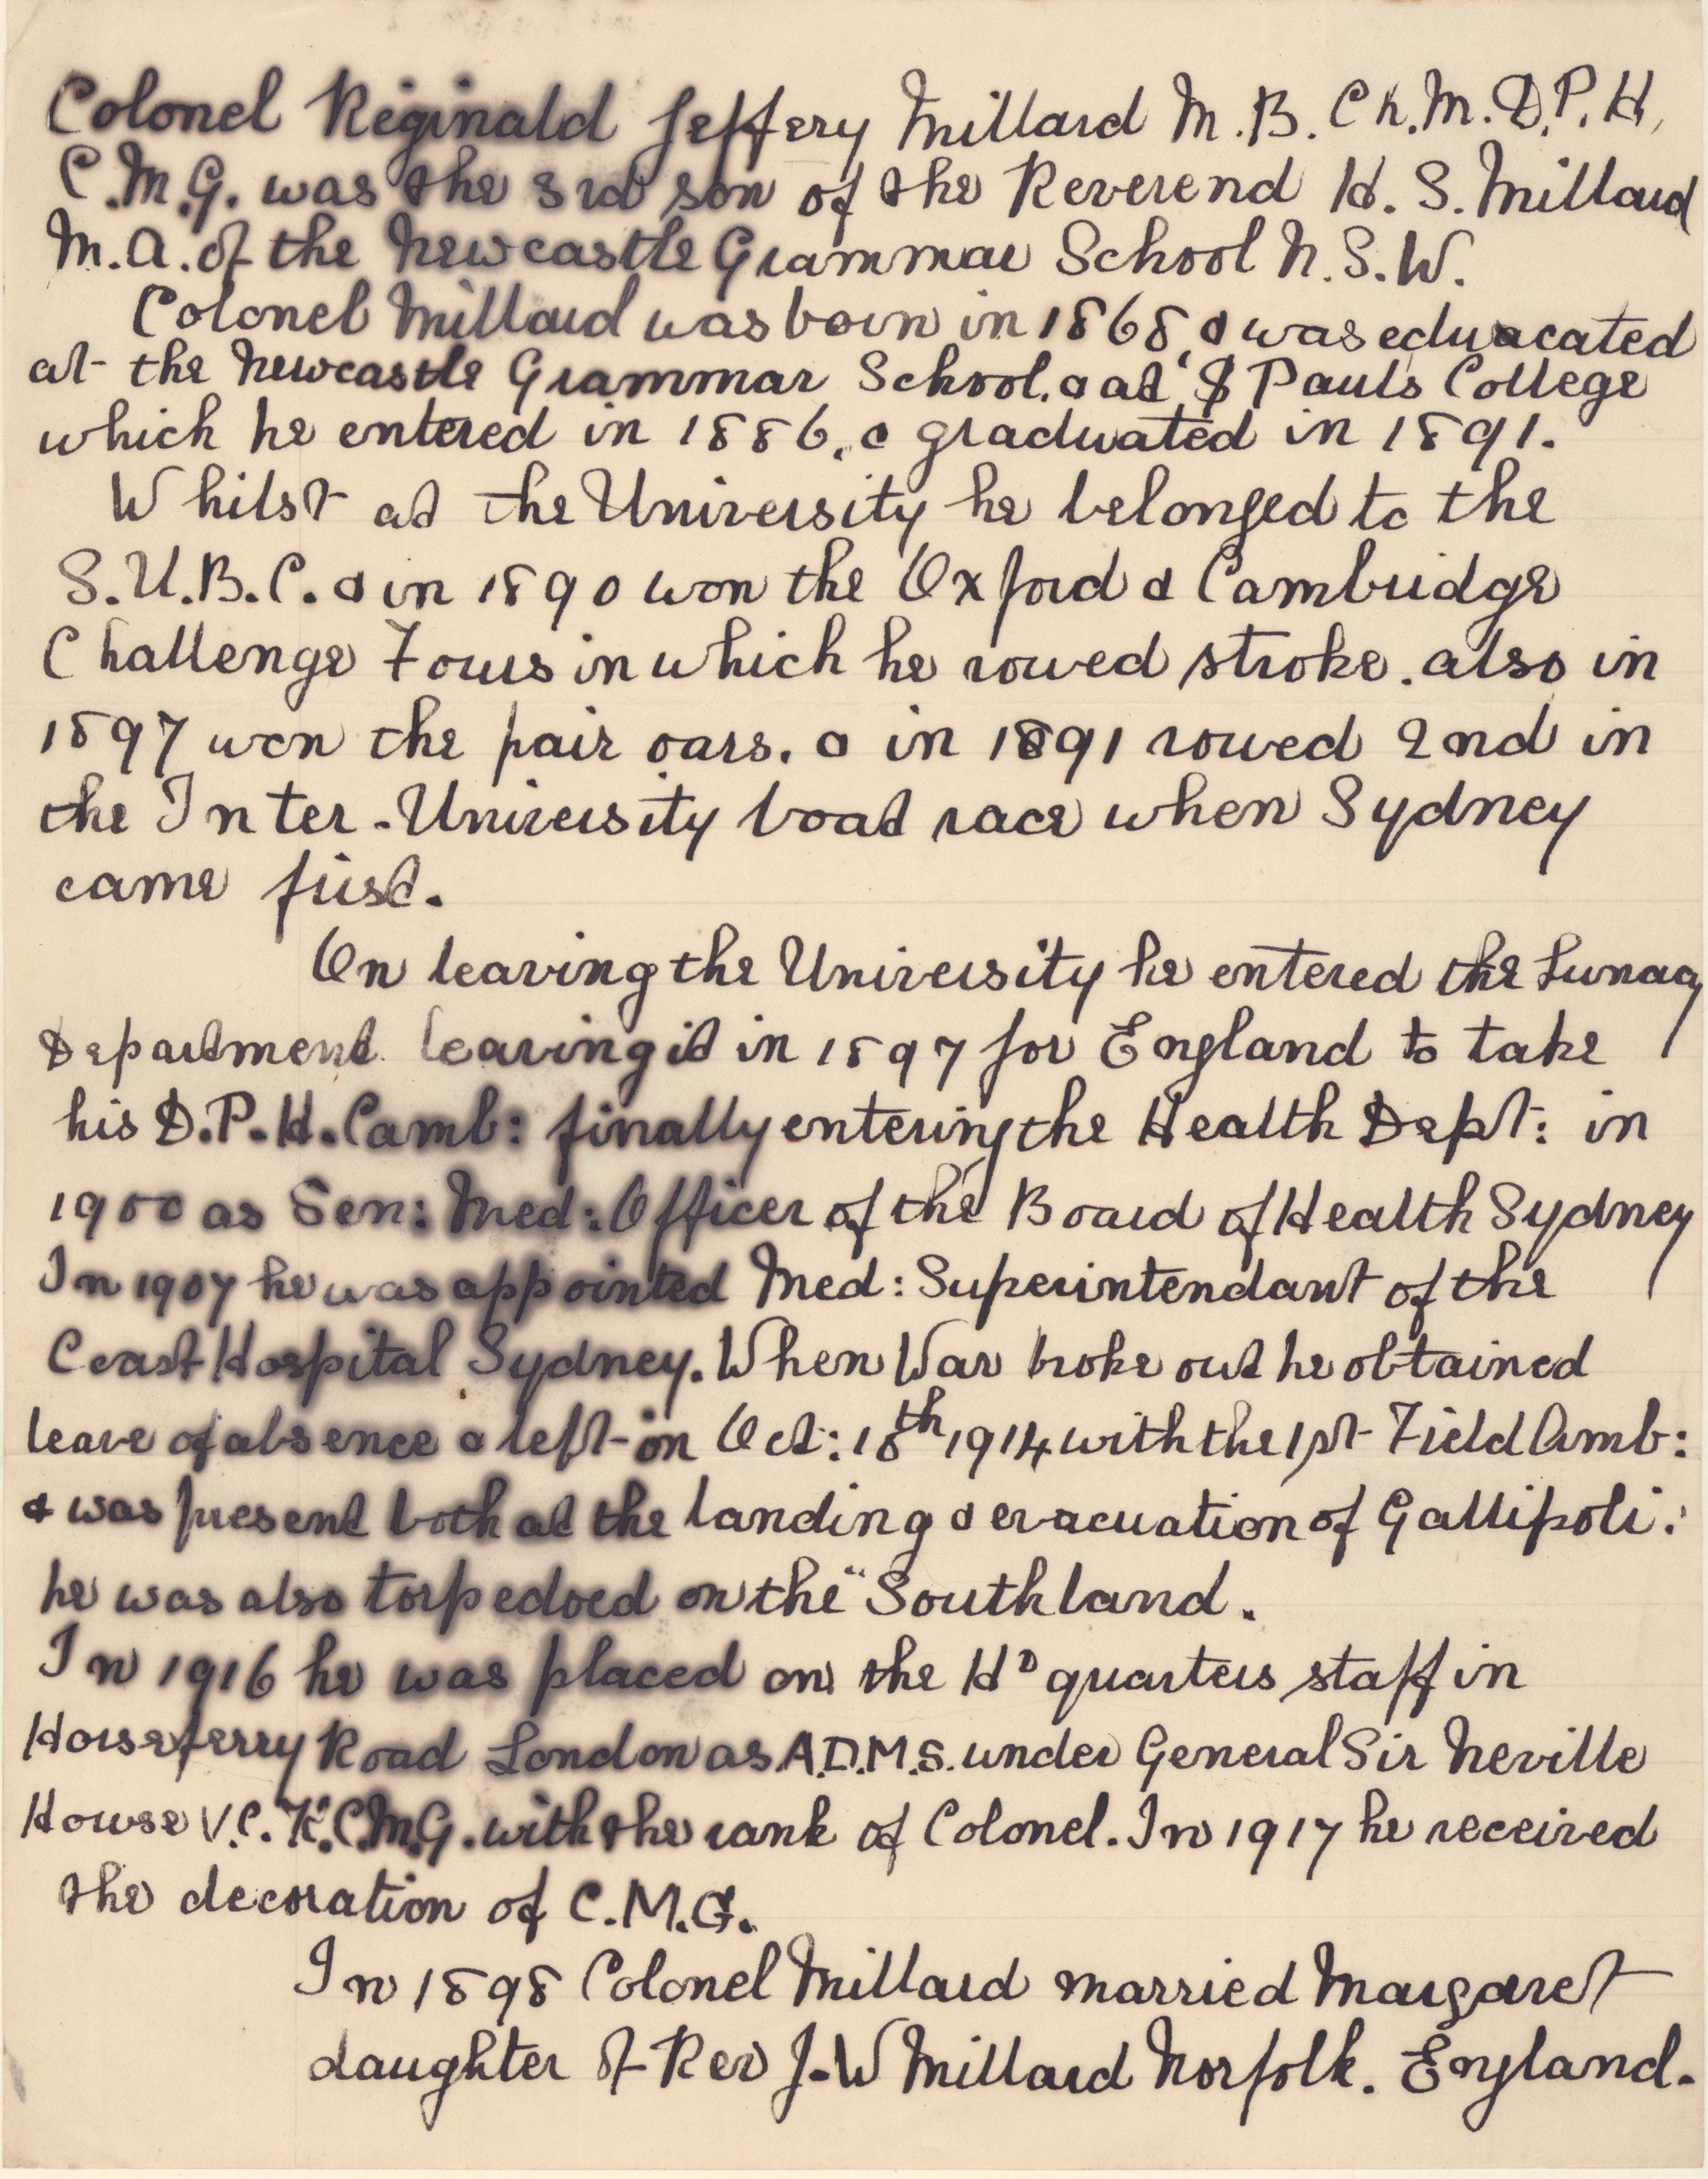 Colonel Reginald Jeffery Millard M.B. Ch.M. D.P.H,
C.M.G. was the 3rd son of the Reverend H. S. Millard
M.A. of the Newcastle Grammar School N.S.W.
Colonel Millard was born in 1868, & was eduacated
at the Newcastle Grammar School. & at St Pauls College
which he entered in 1886, & graduated in 1891.
Whilst at the University he belonged to the
S.U.B.C. & in 1890 won the Oxford & Cambridge
Challenge Fours in which he rowed stroke. also in
1897 won the pair oars. & in 1891 rowed 2nd in
the Inter-University boat race when Sydney
came first.
On leaving the University he entered the Lunacy
Department leaving it in 1897 for England to take
his D.P.H. Camb: finally entering the Health Dept: in
1900 as Sen: Med: Officer of the Board of Health Sydney
In 1907 he was appointed Med: Superintendant of the
Coast Hospital Sydney. When War broke out he obtained
leave of absence & left on Oct: 18th 1914 with the 1st Field Amb:
& was present both at the landing & evacuation of Gallipoli:
he was also torpedoed on the "Southland.
In 1916 he was placed on the HD quarters staff in
Horseferry Road London as A.D.M.S. under General Sir Neville
Howse V.C. K.C.M.G. with the rank of Colonel. In 1917 he received
the decoration of C.M.G.
In 1898 Colonel Millard married Margaret
daughter of Rev J.W Millard Norfolk. England.